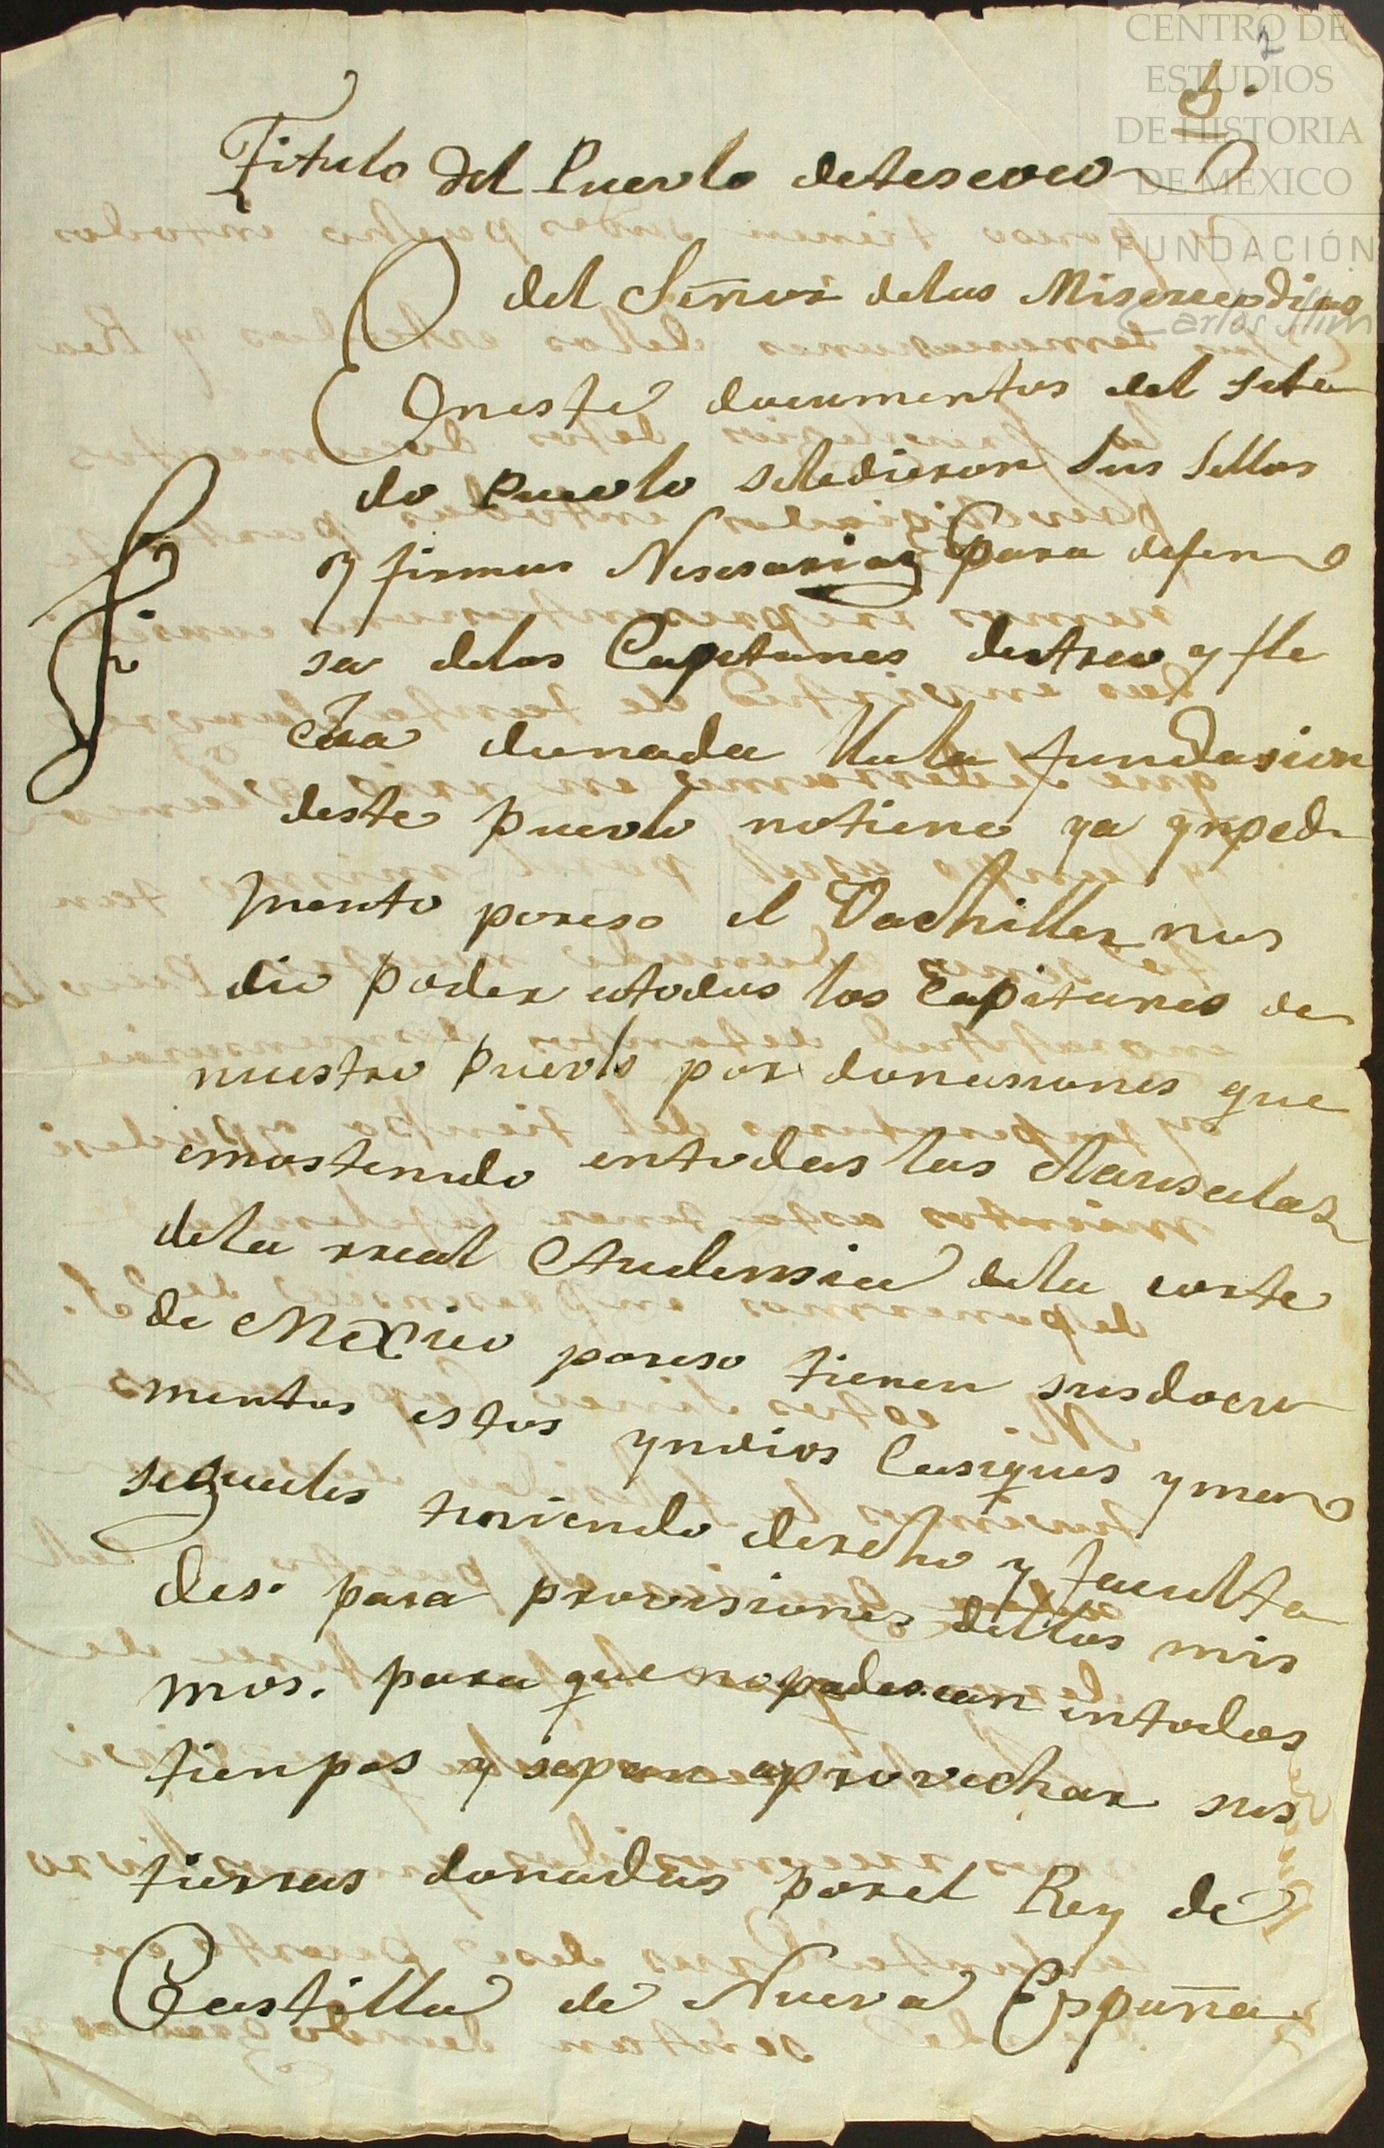 CENTRO DE
ESTUDIOS
DE HISTORIA
DE MÉXICO
FUNDACIÓN
Carlos Slim
2
Titulo del Puevlo detescoco
del Señor delas Misericordias
Eneste documentos del sita
do puevlo seledieron sus sellos
y firmas Nesesarias para defen
sa delos Capitanes destreo y fle
cha dunada Una fundasion
deste puevlo notiene ya ynpedi
mento poreso el Vachiller nos
dio poder atodos los Capitanes de
nuestro puevlo por donasiones que
emostenido entodas las clausulas
dela rreal Audensia dela corte
de Mexico poreso tienen susdocu
mentos estos yndios Casiques ymen
seguales tiniendo derecho y faculta
des. para provisiones dellos mis
mos. para que nopadescan entodos
tienpos y sepan aprovechar sus
tierras donadas porel Rey de
Castilla de Nueva España